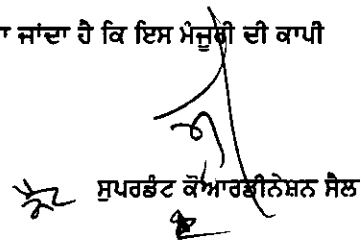 ਜਾਂਦਾ ਹੈ ਕਿ ਇਸ ਮੰਜੂਰੀ ਦੀ ਕਾਪੀ
ਸੁਪਰਡੰਟ ਕੋਆਰਡੀਨੇਸ਼ਨ ਸੈਲ